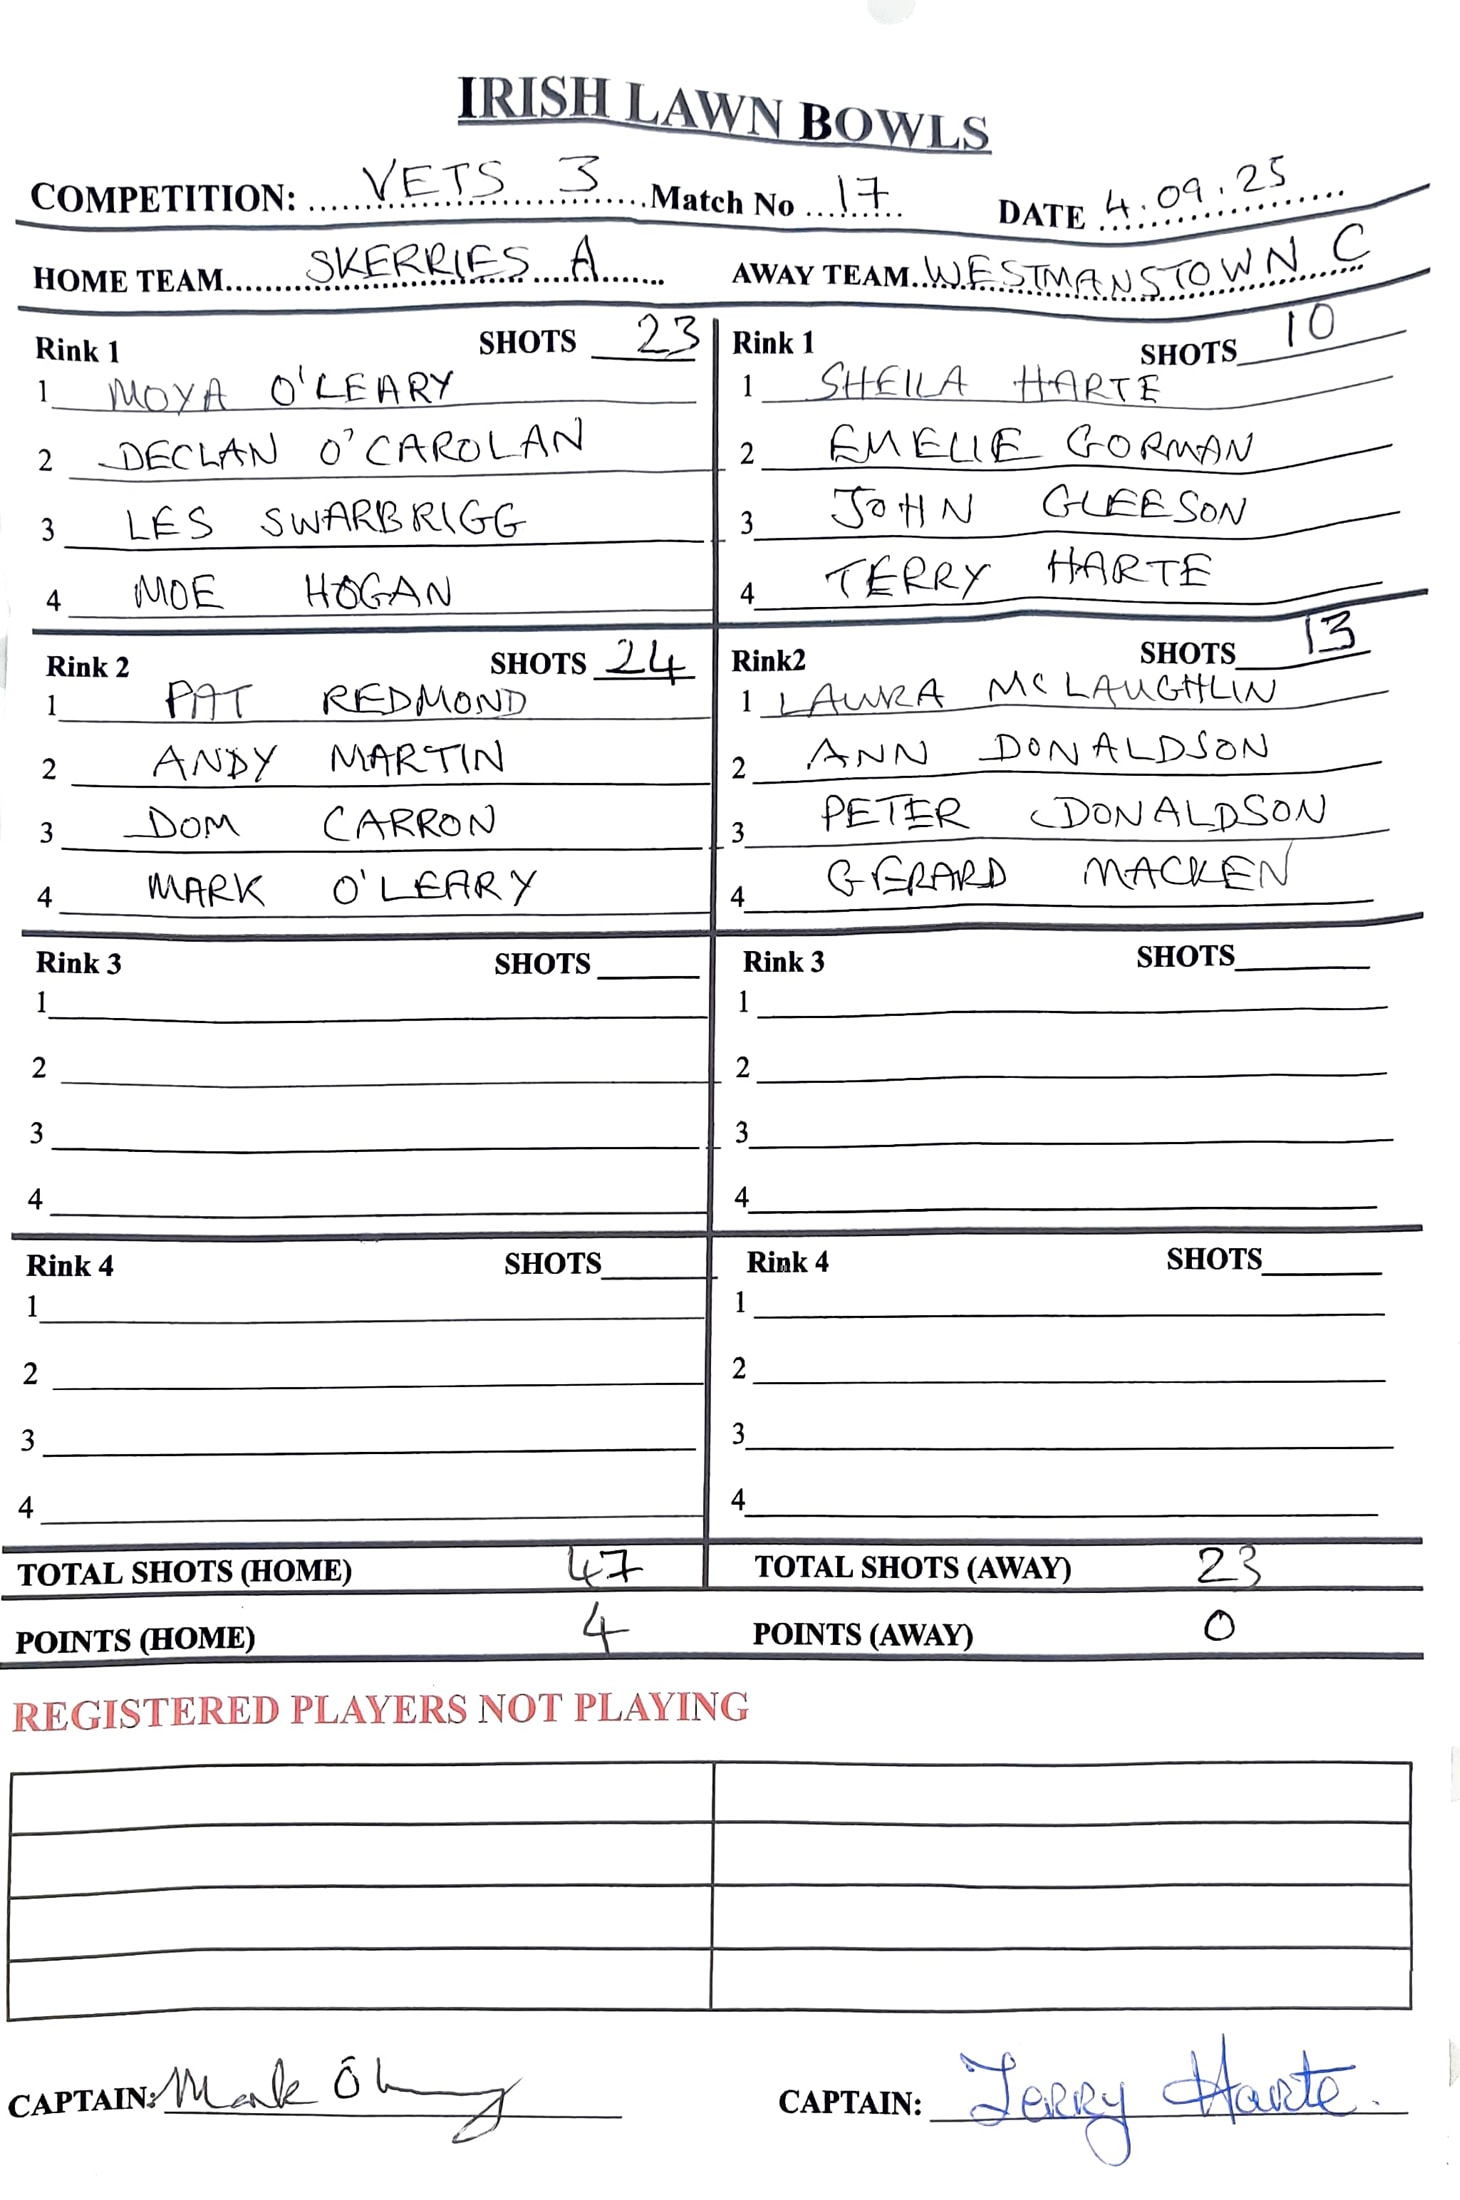 IRISH LAWN BOWLS
COMPETITION: VETS 3 Match No 17 DATE 4.09.25
HOME TEAM SKERRIES A AWAY TEAM WESTMANSTOWN C
Rink 1 SHOTS 23 Rink 1 SHOTS 10
1 MOYA O'LEARY 1 SHEILA HARTE
2 DECLAN O'CAROLAN 2 EMELIE GORMAN
3 LES SWARBRIGG 3 JOHN GLEESON
4 MOE HOGAN 4 TERRY HARTE
Rink 2 SHOTS 24 Rink2 SHOTS 13
1 PAT REDMOND 1 LAURA MCLAUGHLIN
2 ANDY MARTIN 2 ANN DONALDSON
3 DOM CARRON 3 PETER DONALDSON
4 MARK O'LEARY 4 GERARD MACKEN
Rink 3 SHOTS Rink 3 SHOTS
1 1
2 2
3 3
4 4
Rink 4 SHOTS Rink 4 SHOTS
1 1
2 2
3 3
4 4
TOTAL SHOTS (HOME) 47 TOTAL SHOTS (AWAY) 23
POINTS (HOME) 4 POINTS (AWAY) 0
REGISTERED PLAYERS NOT PLAYING
CAPTAIN: Mark CAPTAIN: Terry Harte.